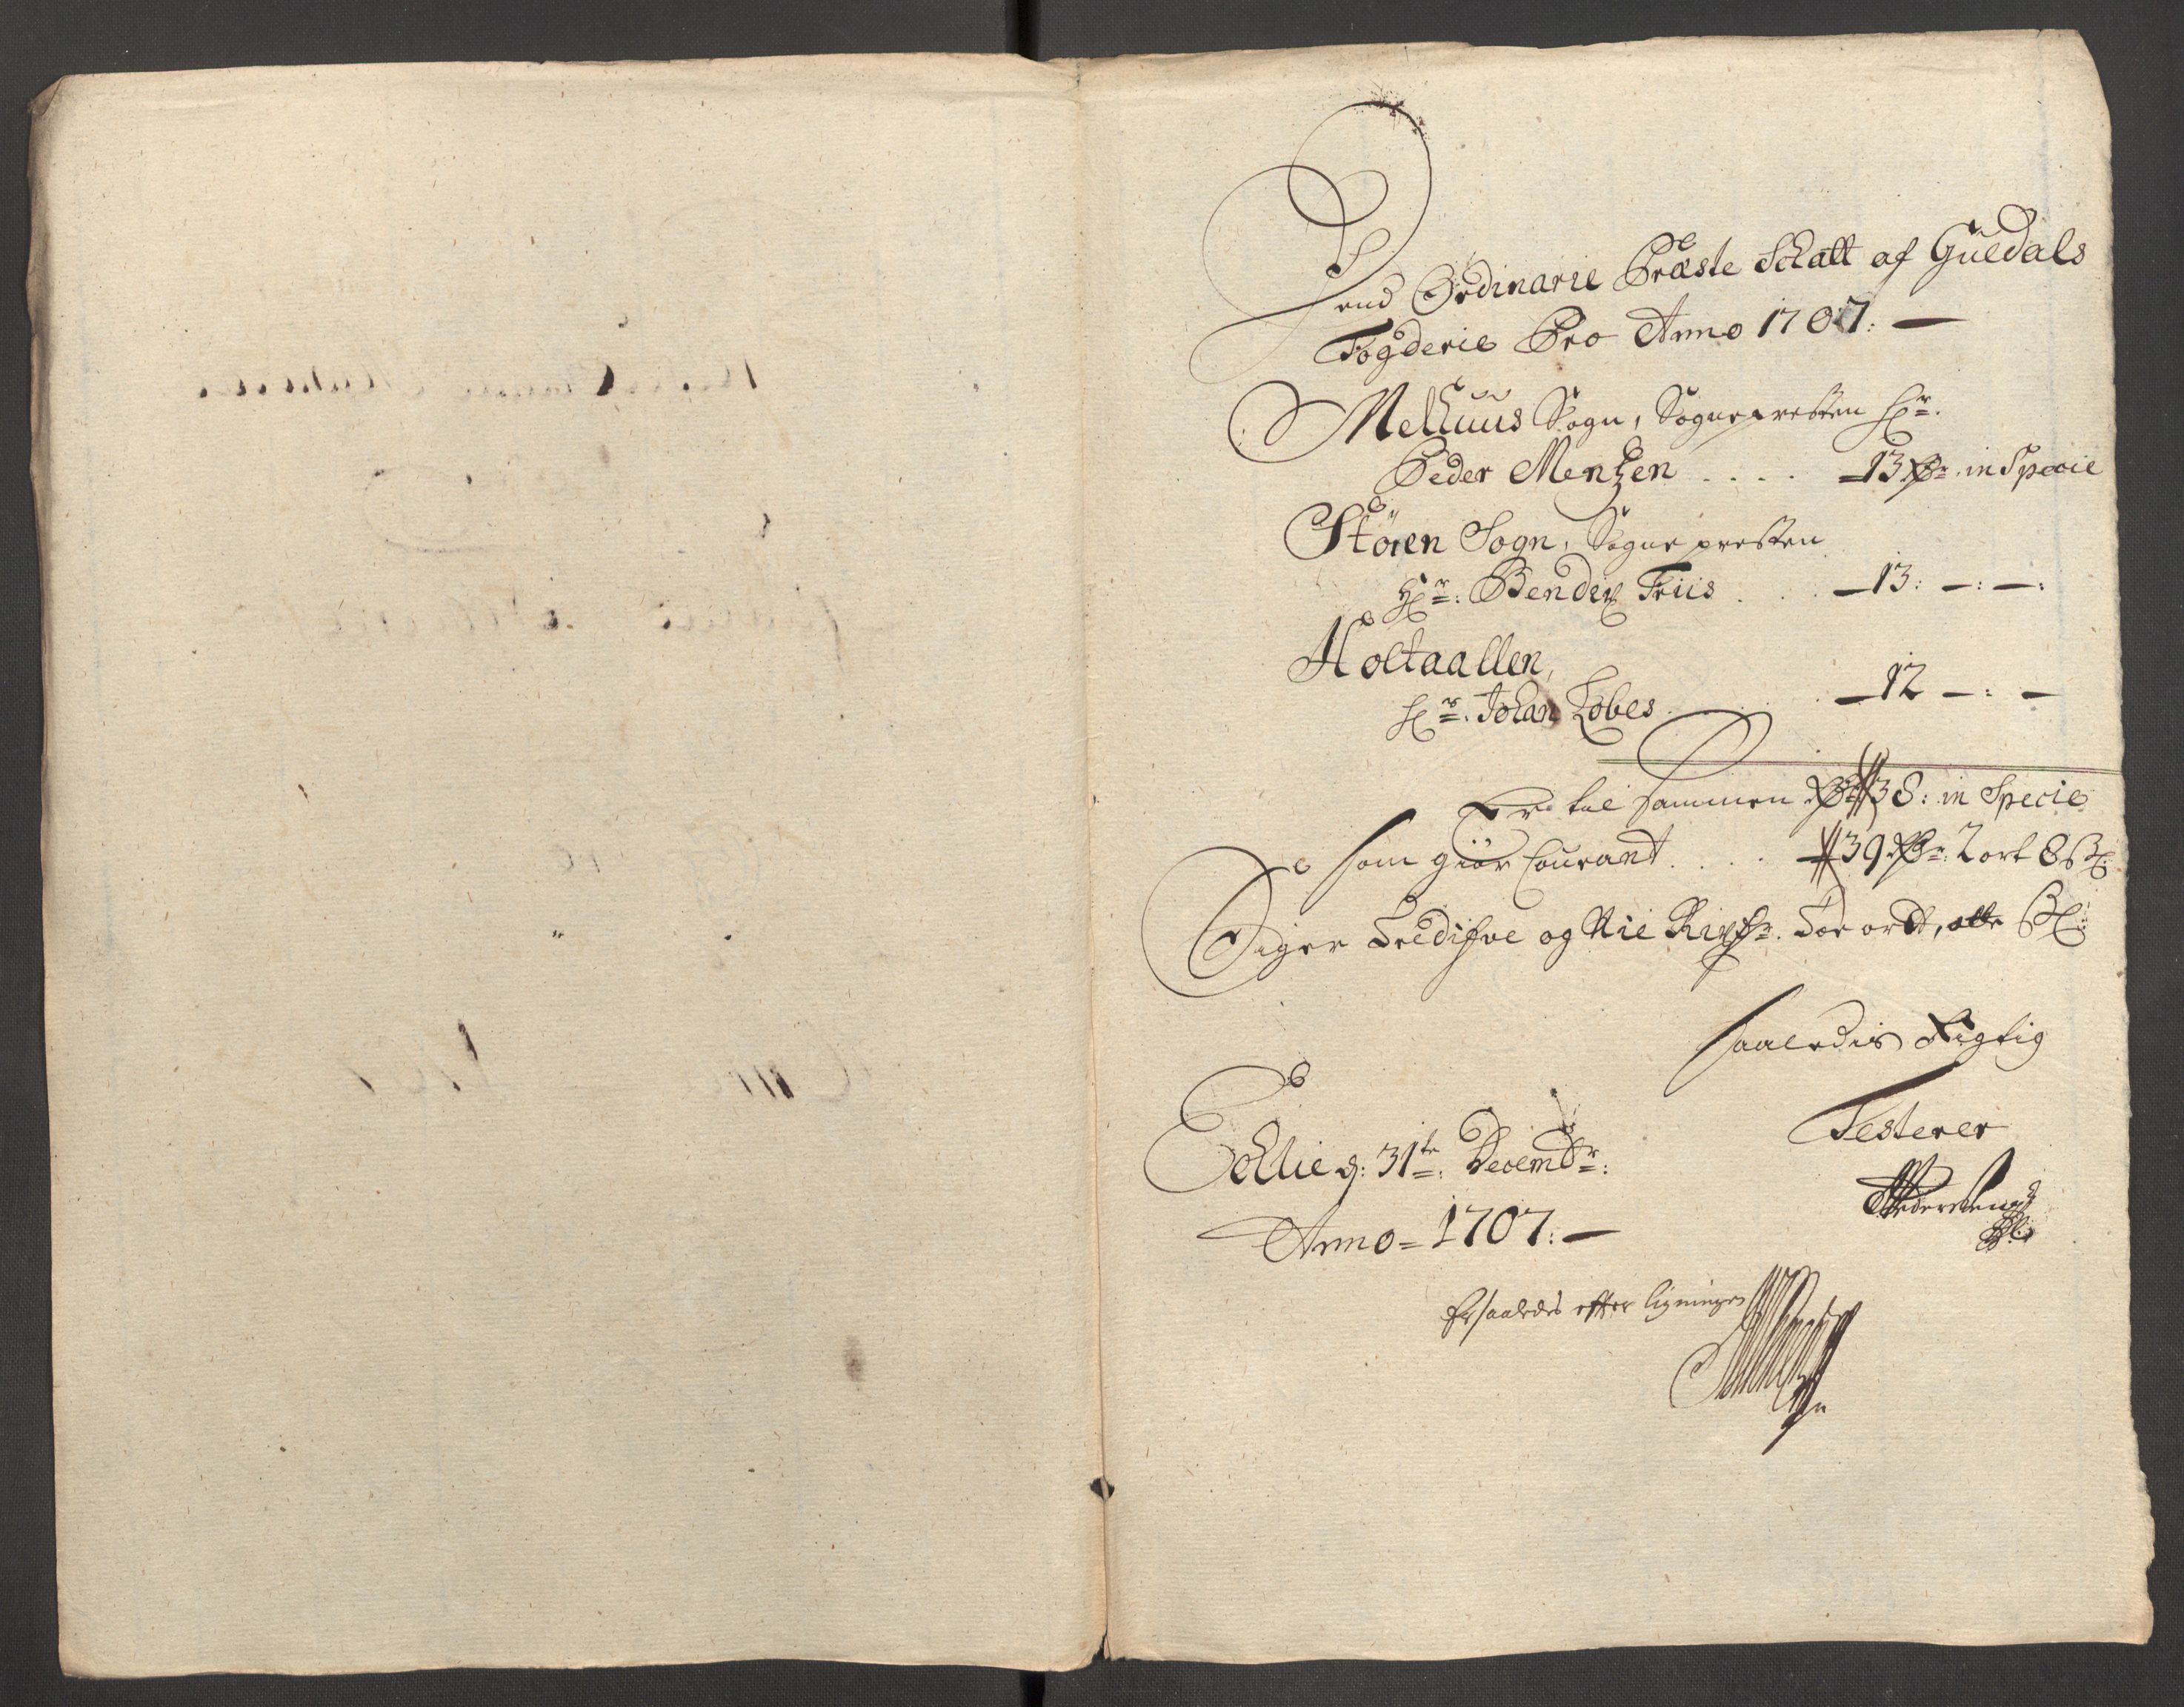 Dend Ordinarie Præste Schatt af Guldals
Fogderie Pro Anno 1707:
Melhuus Sogn, Sognepresten Hr.
Peder Mentzen .... 13 Rdr in Specie
Stören Sogn, Sognepresten
Hr: Bendix Friis . . . 13: —: —:
Holtaallen,
Hr: Johan Lobes . . . 12 —: —
Er tilsammen Rdr 38: in Specie
som giör Courant .... 39 Rdr: 2 ort 8 ß:
Siger Tredifve og Nie Rixdr. Toe ort, otte ß:
Saaledis Rigtig
Testerer
d: 31te: Decembr:
Anno = 1707:
Er saaledes efter ligningen